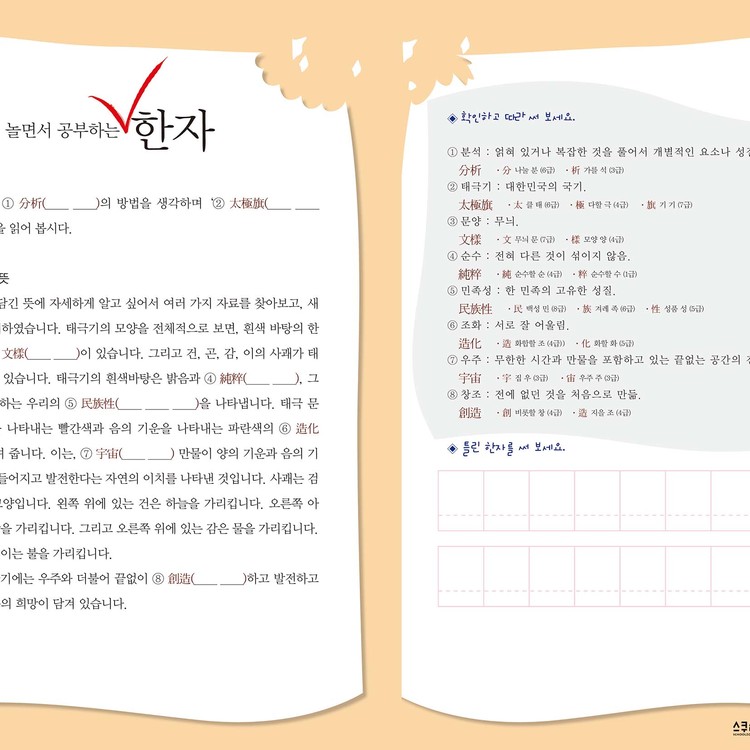 놀면서 공부하는 한자
① 分析(____ ____)의 방법을 생각하며 '② 太極旗(____ ____
을 읽어 봅시다.
뜻
담긴 뜻에 자세하게 알고 싶어서 여러 가지 자료를 찾아보고, 새
하였습니다. 태극기의 모양을 전체적으로 보면, 흰색 바탕의 한
文樣(____ ____)이 있습니다. 그리고 건, 곤, 감, 이의 사괘가 태
있습니다. 태극기의 흰색바탕은 밝음과 ④ 純粹(____ ____), 그
하는 우리의 ⑤ 民族性(____ ____ ____)을 나타냅니다. 태극 문
나타내는 빨간색과 음의 기운을 나타내는 파란색의 ⑥ 造化
줍니다. 이는, ⑦ 宇宙(____ ____) 만물이 양의 기운과 음의 기
들어지고 발전한다는 자연의 이치를 나타낸 것입니다. 사괘는 검
모양입니다. 왼쪽 위에 있는 건은 하늘을 가리킵니다. 오른쪽 아
을 가리킵니다. 그리고 오른쪽 위에 있는 감은 물을 가리킵니다.
이는 불을 가리킵니다.
기에는 우주와 더불어 끝없이 ⑧ 創造(____ ____)하고 발전하고
의 희망이 담겨 있습니다.
◈ 확인하고 따라 써 보세요.
① 분석 : 얽혀 있거나 복잡한 것을 풀어서 개별적인 요소나 성질
分析 · 分 나눌 분 (6급) · 析 가를 석 (3급)
② 태극기 : 대한민국의 국기.
太極旗 · 太 클 태 (6급) · 極 다할 극 (4급) · 旗 기 기 (7급)
③ 문양 : 무늬.
文樣 · 文 무늬 문 (7급) · 樣 모양 양 (4급)
④ 순수 : 전혀 다른 것이 섞이지 않음.
純粹 · 純 순수할 순 (4급) · 粹 순수할 수 (1급)
⑤ 민족성 : 한 민족의 고유한 성질.
民族性 · 民 백성 민 (8급) · 族 겨레 족 (6급) · 性 성품 성 (5급)
⑥ 조화 : 서로 잘 어울림.
造化 · 造 화합할 조 (4급)) · 化 화할 화 (5급)
⑦ 우주 : 무한한 시간과 만물을 포함하고 있는 끝없는 공간의 총
宇宙 · 宇 집 우 (3급) · 宙 우주 주 (3급)
⑧ 창조 : 전에 없던 것을 처음으로 만듦.
創造 · 創 비롯할 창 (4급) · 造 지음 조 (4급)
◈ 틀린 한자를 써 보세요.
스쿠